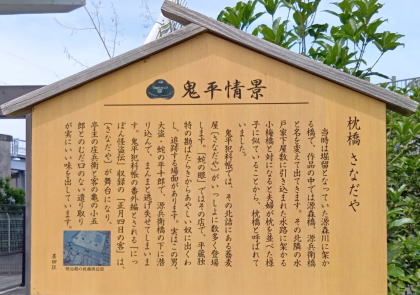 鬼平情景
枕橋 さなだや
当時は堀留となっていた源森川に架か
る橋で、作品の中で源森橋、源兵衛橋
と名を変えて出てきます。その北隣の水
戸家下屋敷に引き込まれた水路に架かる
小梅橋と対になると夫婦が枕を並べた様
子に似ていることから、枕橋と呼ばれて
いました。
鬼平犯科帳では、その北詰にある蕎麦
屋「さなだや」がいっしょに数多く登場
します。「蛇の眼」ではその店で、平蔵独
特の勘ばたらきからあやしい奴に出くわ
し、追跡する場面があります。実はこの男、
大盗・蛇の平十郎で、源兵衛橋の下に潜
り込んで、まんまと逃げ失せてしまいま
す。鬼平犯科帳の番外編とされる「にっ
ぽん怪盗伝」収録の「正月四日の客」は、
「さなだや」が舞台になり、
亭主の庄兵衛と客の亀の小五
郎とのはだ口のない遣り取り
が実にいい味を出しています。
墨田区